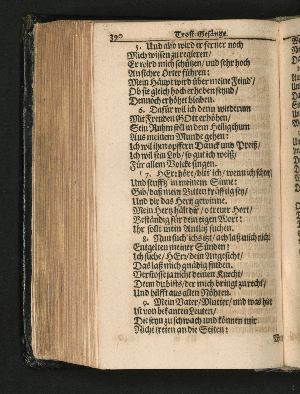 390 Trost-Gesänge.
5. Und also wird er ferner noch
Mich wissen zu regieren/
Er wird mich schützen/ und sehr hoch
An sichre Örter führen:
Mein Häupt wird über meine Feind/
Ob sie gleich hoch erhoben seynd/
Dennoch erhöhet bleiben.
6. Dafür wil ich denn wiederum
Mit Freuden GOtt erhöhen/
Sein Ruhm soll in dem Heiligthum
Aus meinem Munde gehen:
Ich wil ihm opffern Danck und Preiß/
Ich wil sein Lob/ so gut ich weiß/
Für allem Volcke singen.
7. HErr hör/ bitt ich/ wenn ich schrey
Und seufftz in meinem Sinne:
Gib/ daß mein Ruffen kräfftig sey/
Und dir das Hertz gewinne.
Mein Hertz hält dir/ o treuer Hort/
Beständig für dein eigen Wort:
Ihr sollt mein Antlitz suchen.
8. Nun such ich itzt/ ach laß mich nicht
Entgelten meiner Sünden:
Ich suche/ HErr/ dein Angesicht/
Das laß mich gnädig finden.
Verstosse ja nicht deinen Knecht/
Denn du bists/ der mich bringt zu recht/
Und hilfft aus allen Nöhten.
9. Mein Vater/ Mutter/ und was hie
Ist von bekanten Leuten/
Die seyn zu schwach und können nie
Nicht treten an die Seiten: